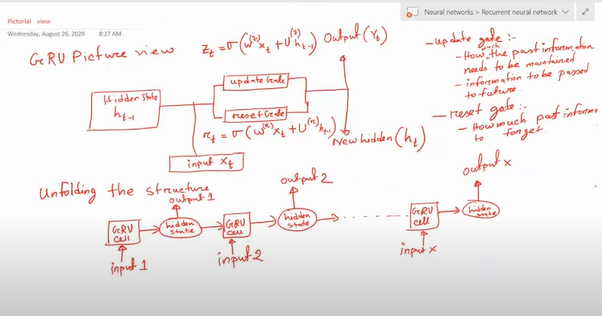 Pictorial view
Wednesday, August 26, 2020 8:27 AM
Neural networks > Recurrent neural network
GRU Picture view
z_t = σ(W^(z) x_t + U^(z) h_t-1)
Output (Y_t)
update Gate
Hidden State
h_t-1
reset Gate
r_t = σ(W^(r) x_t + U^(r) h_t-1)
New hidden (h_t)
input x_t
- update gate :-
- How much the past information
needs to be maintained
- information to be passed
to future.
- reset gate :-
- How much past inform
to forget
Unfolding the structure
output 1
output 2
output x
GRU
cell
hidden
state
GRU
cell
hidden
state
GRU
cell
hidden
state
input 1
input 2
input x